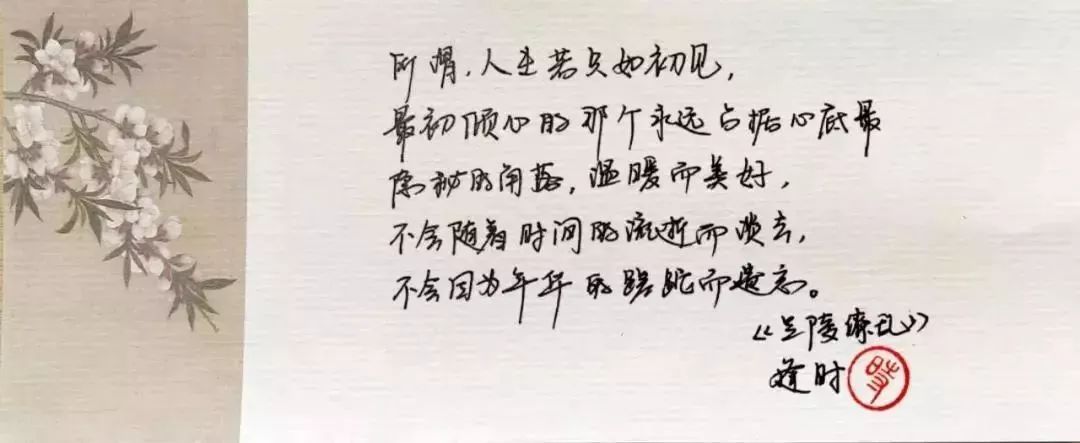 所谓，人生若只如初见，
最初倾心的那个永远占据心底最
隐秘的角落，温暖而美好，
不会随着时间的流逝而淡去，
不会因为年华的蹉跎而遗忘。
《兰陵缭乱》
逢时